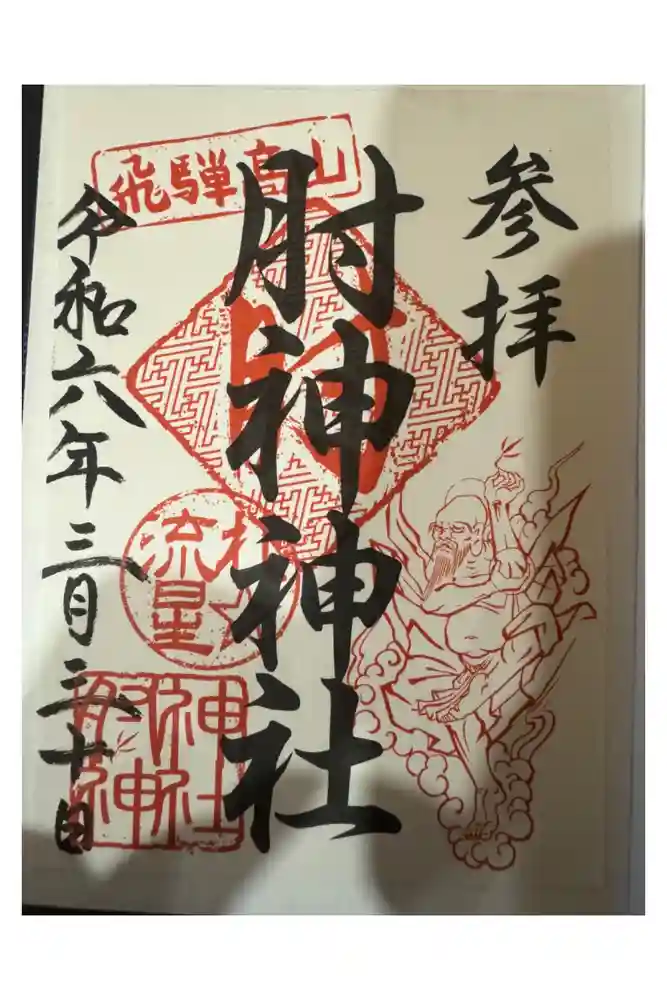 参拝
肘神神社
飛騨高山
流星
肘神神社
令和六年三月三十日